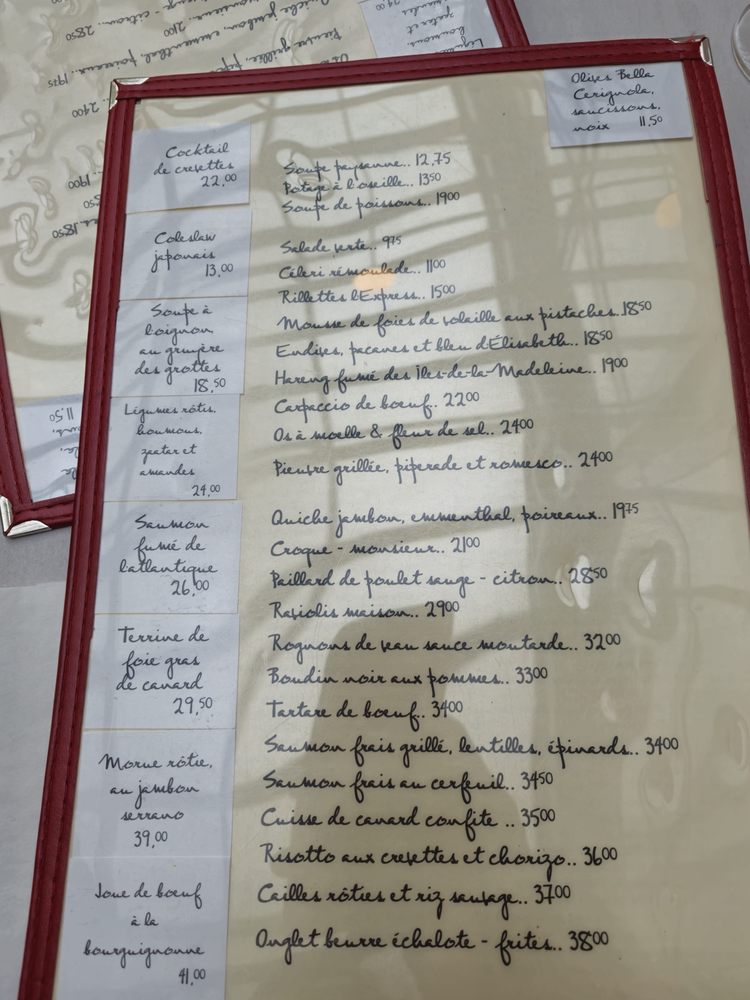 Olives Bella
Cerignola,
saucissons,
noix 11,50
Cocktail
de crevettes
22,00
Coleslaw
japonais
13,00
Soupe à
l'oignon
au gruyère
des grottes
18,50
Légumes rôtis,
houmous,
zaatar et
amandes
24,00
Saumon
fumé de
l'atlantique
26,00
Terrine de
foie gras
de canard
29,50
Morue rôtie,
au jambon
serrano
39,00
Joue de boeuf
à la
bourguignonne
41,00
Soupe paysanne.. 12,75
Potage à l'oseille.. 1350
Soupe de poissons.. 1900
Salade verte.. 975
Céleri rémoulade.. 1100
Rillettes L'Express.. 1500
Mousse de foies de volaille aux pistaches. 1850
Endives, pacanes et bleu d'Élisabeth.. 1850
Hareng fumé des Îles-de-la-Madeleine.. 1900
Carpaccio de boeuf.. 2200
Os à moelle & fleur de sel.. 2400
Pieuvre grillée, piperade et romesco.. 2400
Quiche jambon, emmenthal, poireaux.. 1975
Croque-monsieur.. 2100
Paillard de poulet sauge - citron.. 2850
Raviolis maison.. 2900
Rognons de veau sauce moutarde.. 3200
Boudin noir aux pommes.. 3300
Tartare de boeuf.. 3400
Saumon frais grillé, lentilles, épinards.. 3400
Saumon frais au cerfeuil.. 3450
Cuisse de canard confite .. 3500
Risotto aux crevettes et chorizo.. 3600
Cailles rôties et riz sauvage.. 3700
Onglet beurre échalote - frites.. 3800